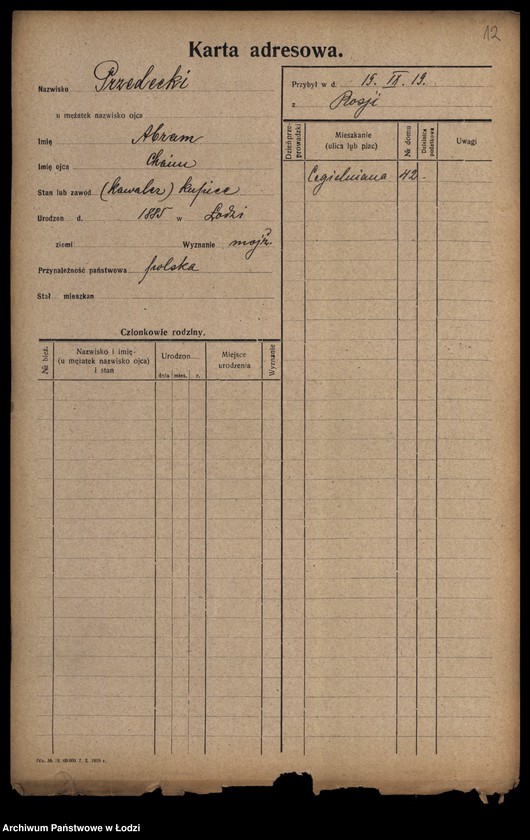 12
Karta adresowa.
Nazwisko Przedecki
u mężatek nazwisko ojca
Imię Abram
Imię ojca Chaim
Stan lub zawód (Kawaler) kupiec
Urodzon d. 1885 w Łodzi
ziemi Wyznanie mojż.
Przynależność państwowa polska
Stał mieszkan
Przybył w d. 15. 19.
z Rosji
Dzień przeprowadzki
Mieszkanie
(ulica lub plac)
№ domu
Dzielnica podatkowa
Uwagi
Cegielniana 42
Członkowie rodziny.
№ bież.
Nazwisko i imię
(u mężatek nazwisko ojca)
i stan
Urodzon
dnia mies. r.
Miejsce
urodzenia
Wyznanie
Archiwum Państwowe w Łodzi